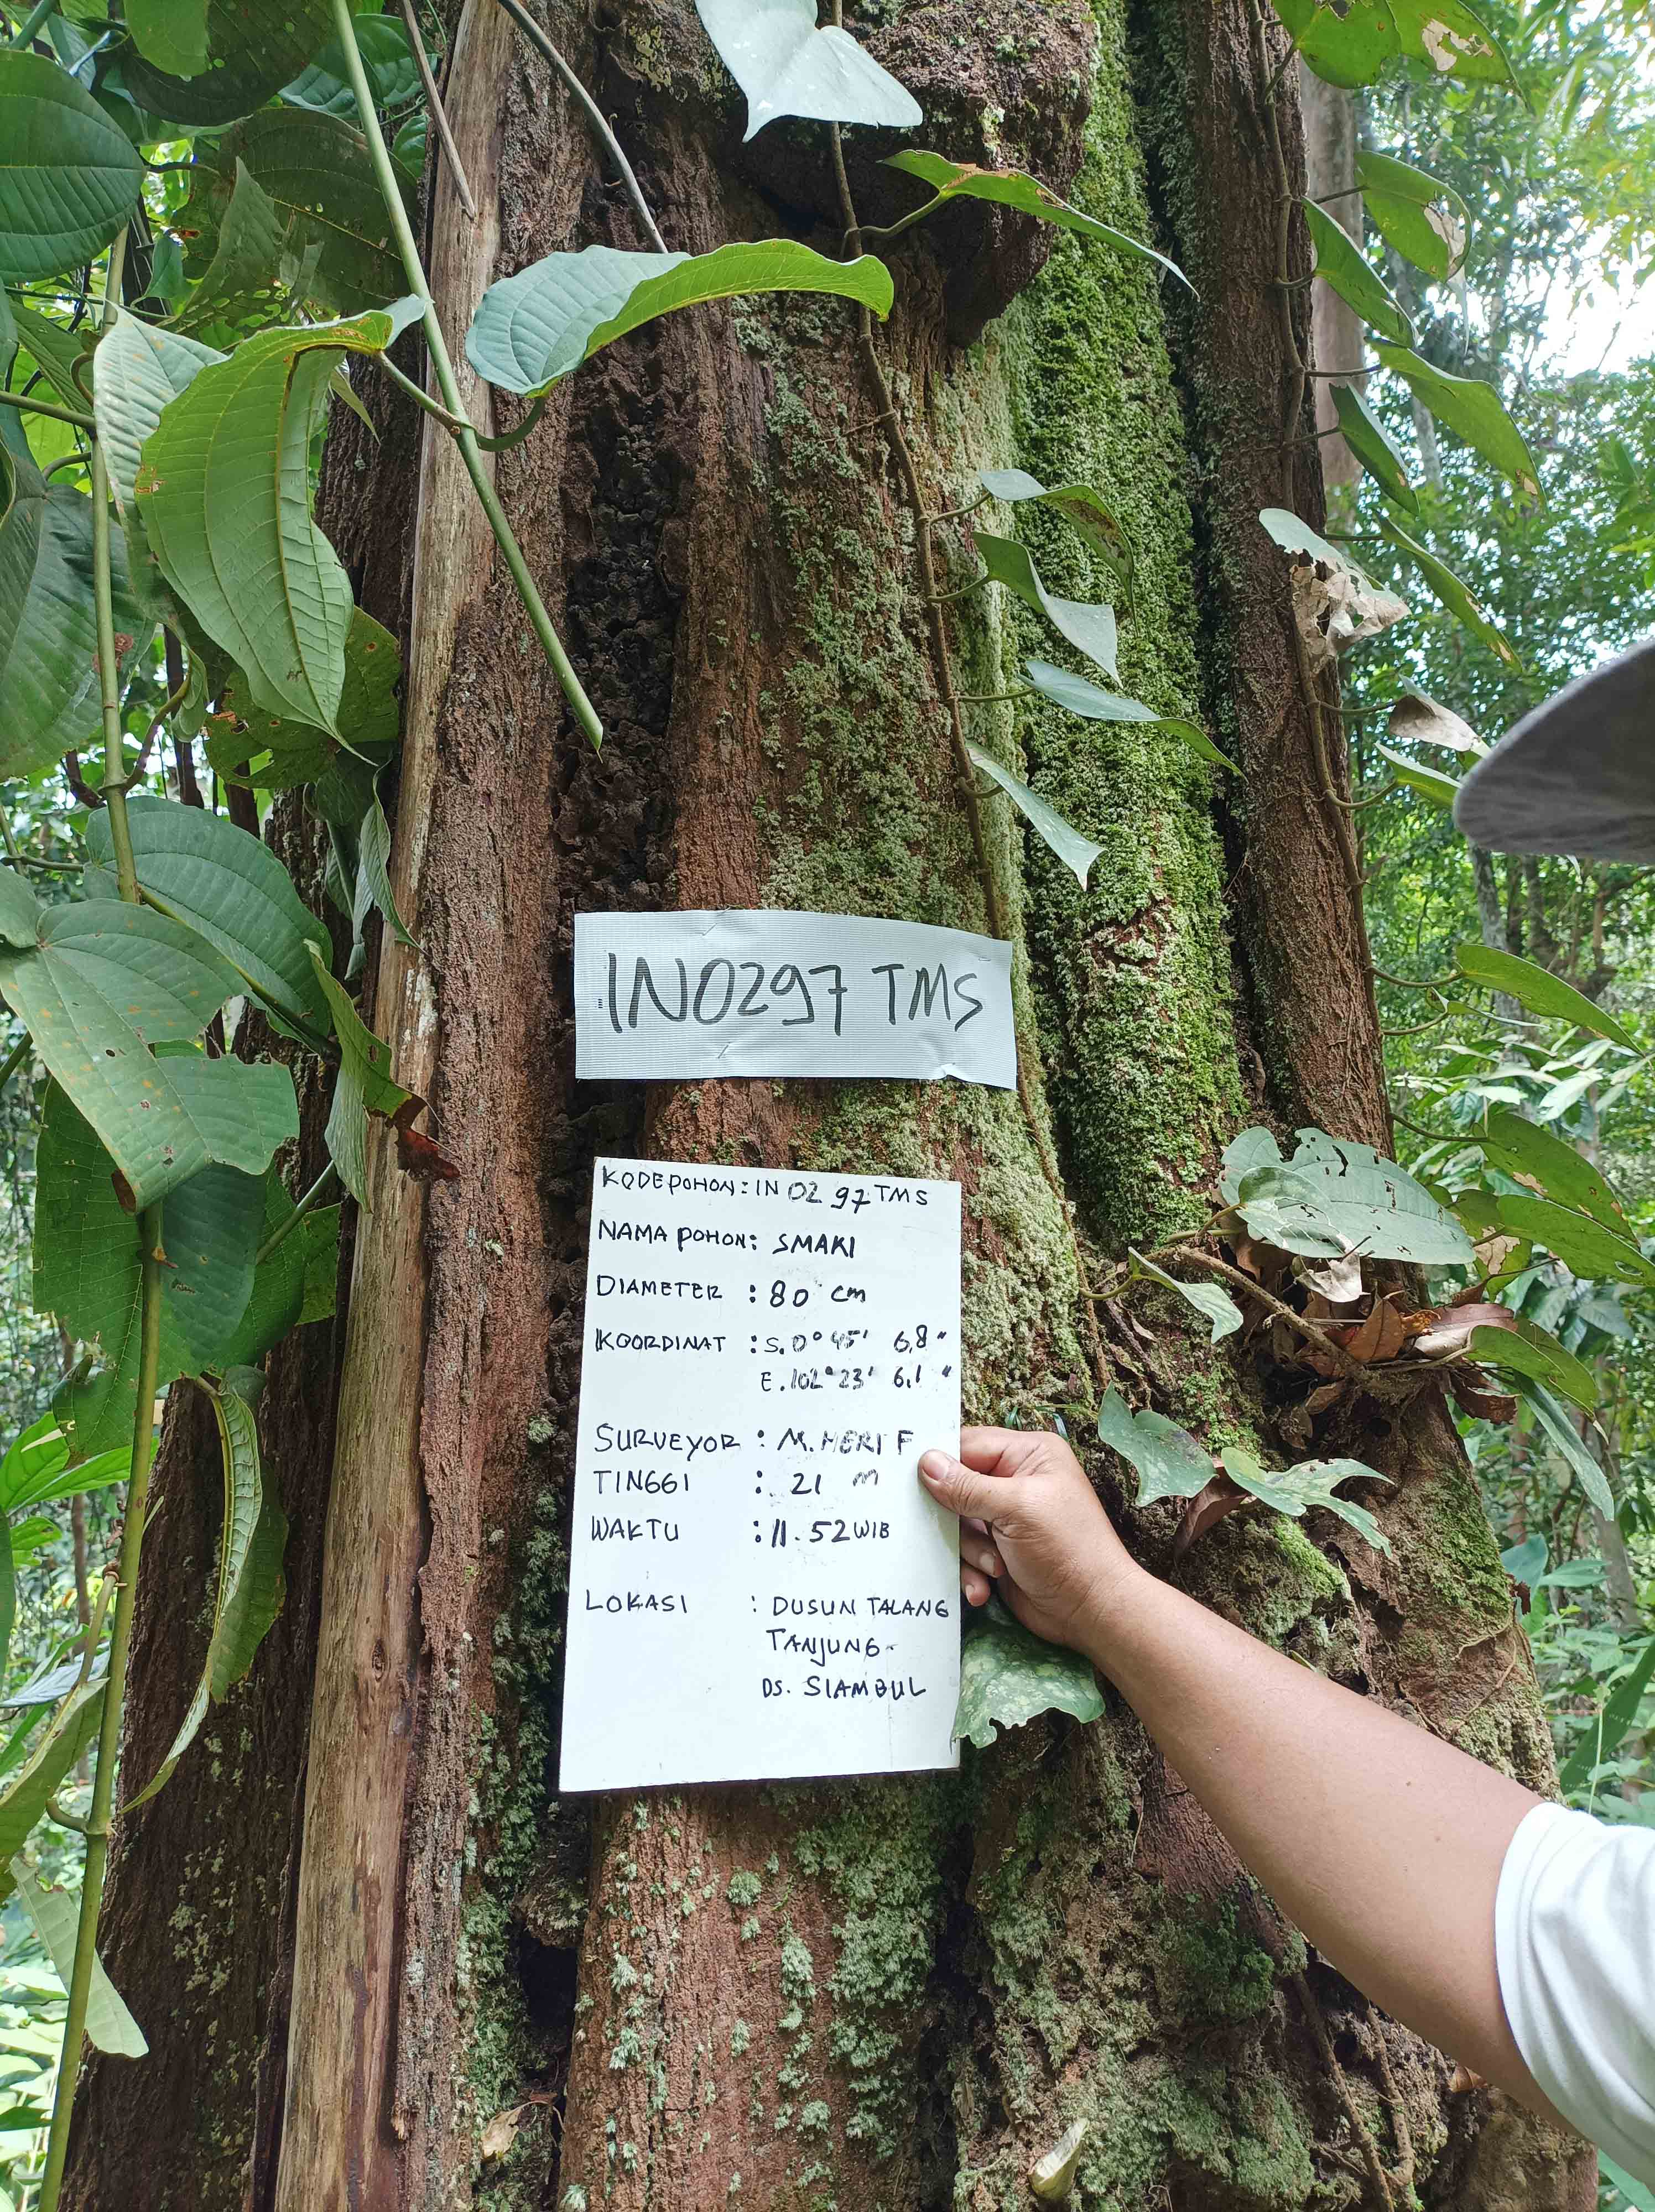 IN0297 TMS
KODEPOHON: IN 02 97 TMS
NAMA POHON: SMAKI
DIAMETER : 80 cm
KOORDINAT : S. 0° 45' 6,8"
E. 102° 23' 6,1"
SURVEYOR : M. HERI F
TINGGI : 21 m
WAKTU : 11. 52 WIB
LOKASI : DUSUN TALANG
TANJUNG
DS. SIAMBUL